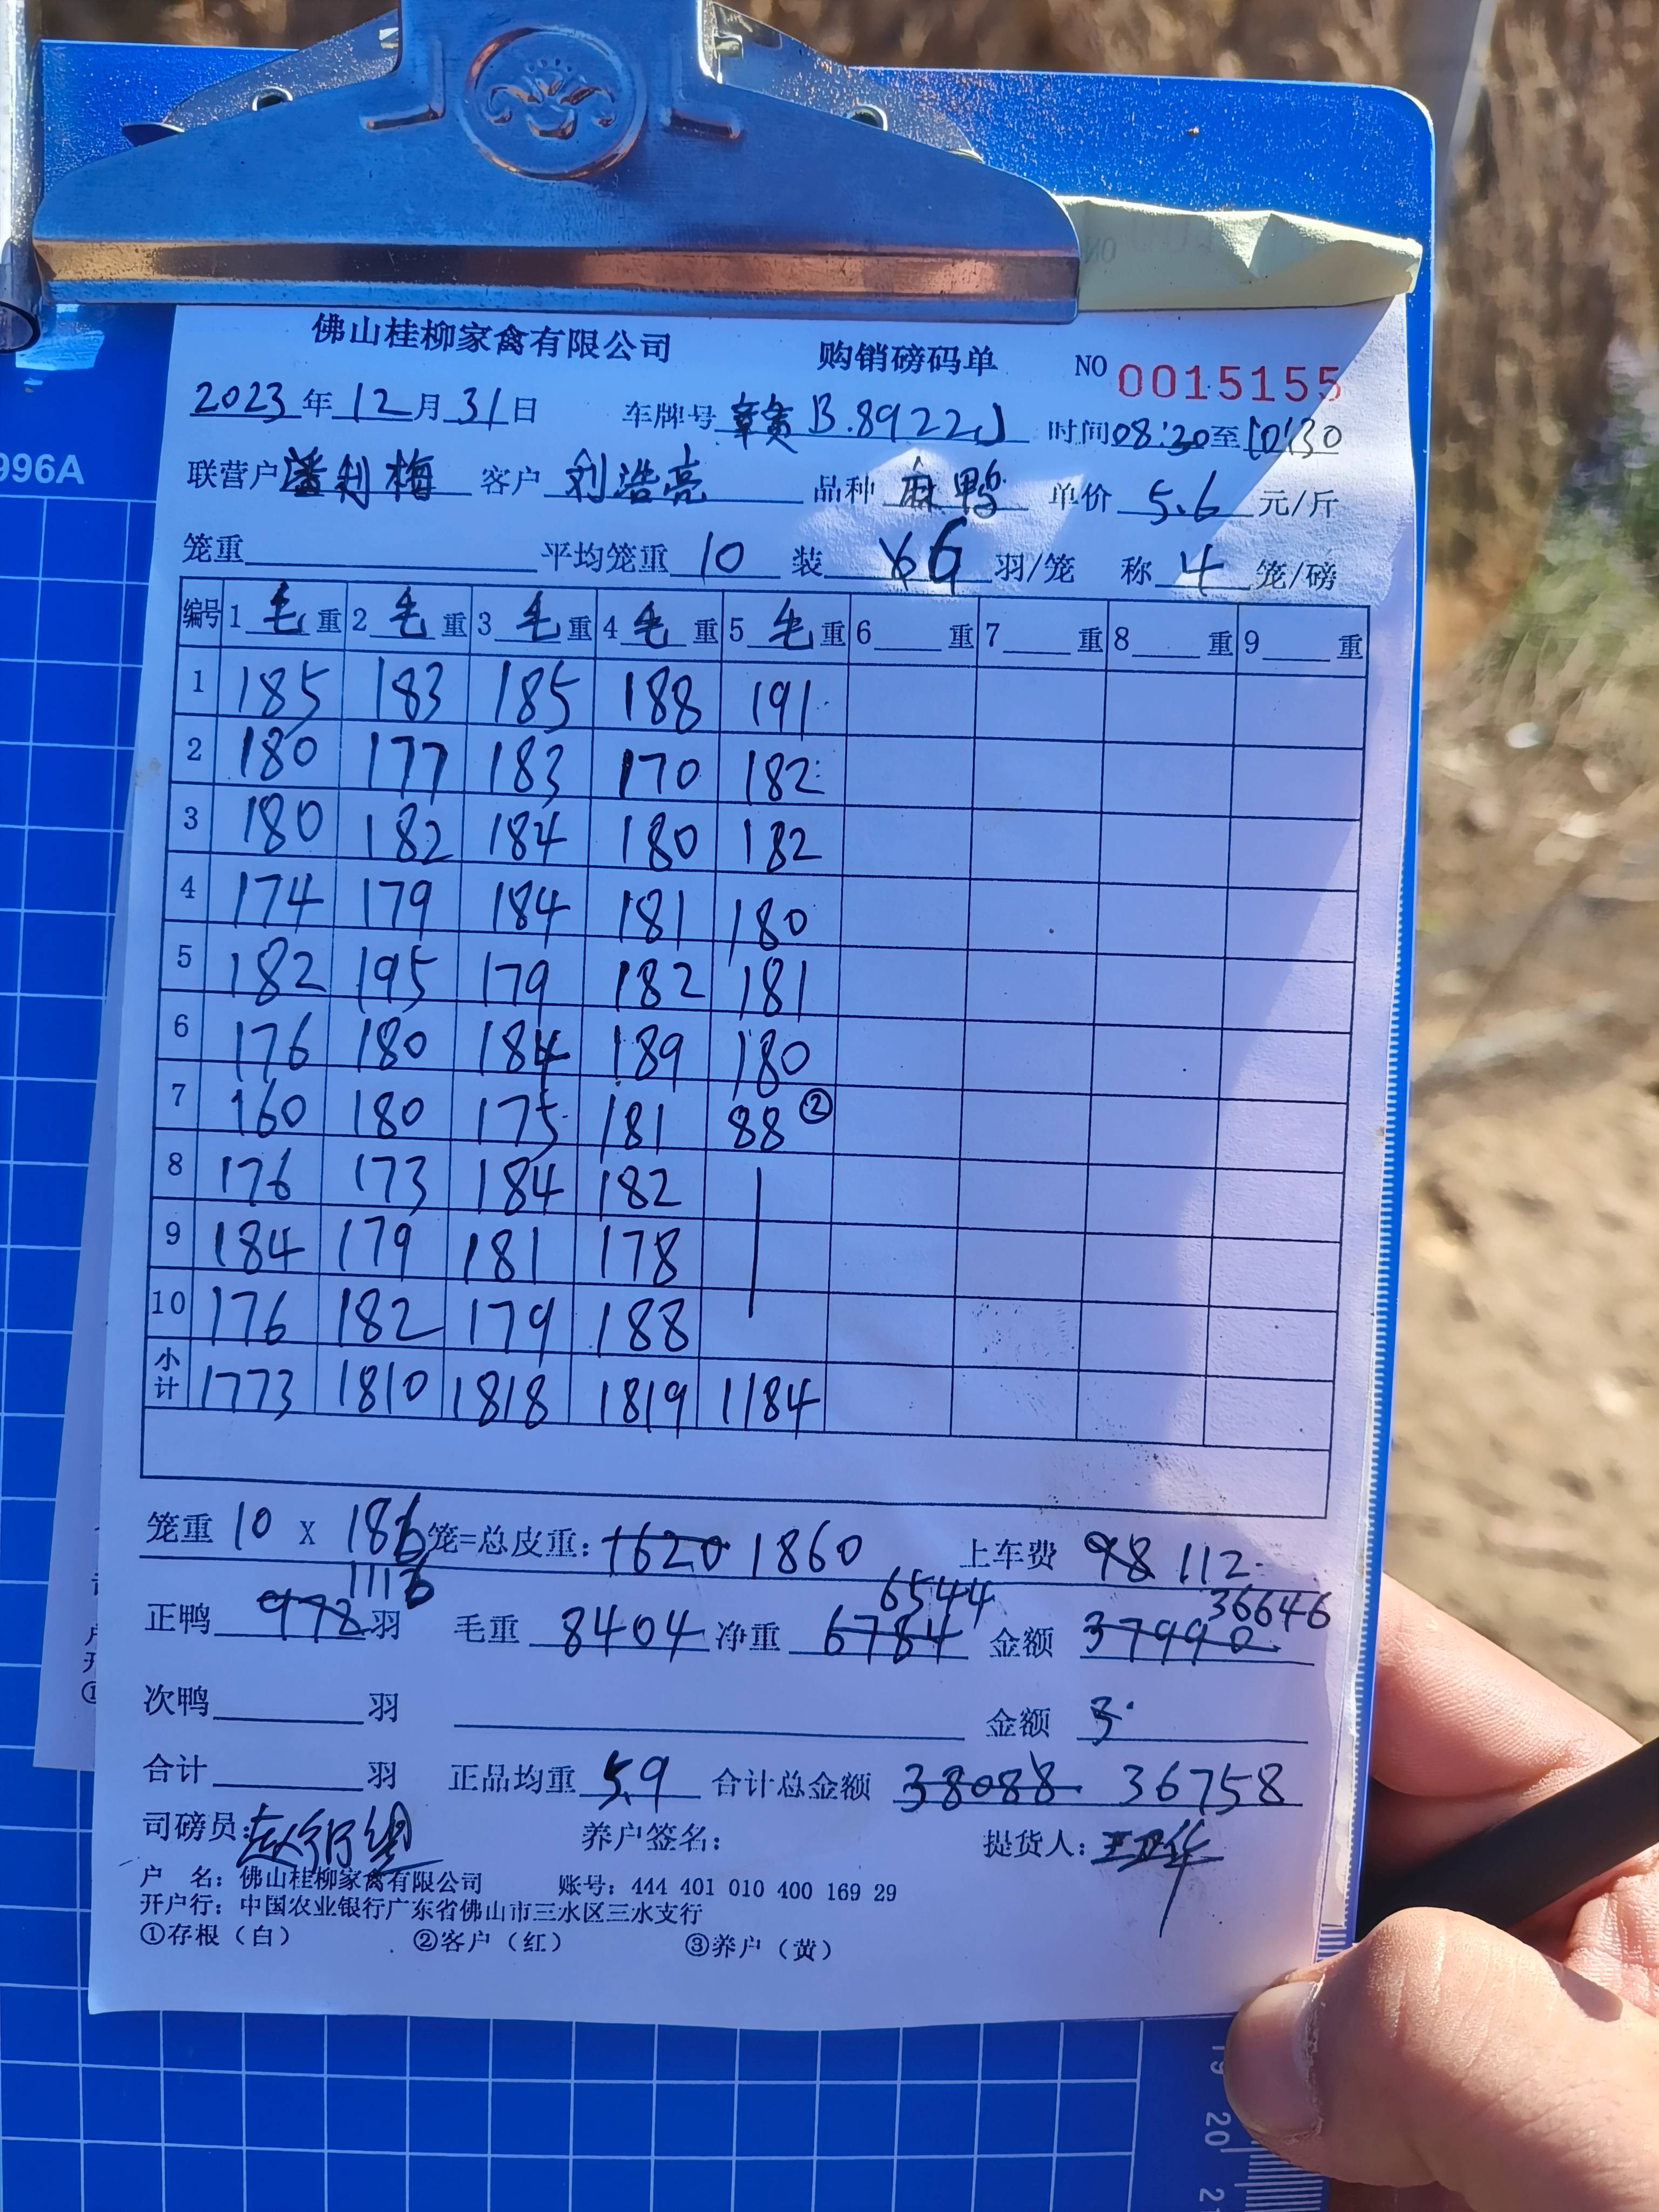 996A
佛山桂柳家禽有限公司 购销磅码单 NO 0015155
2023年12月31日 车牌号 赣B.8922J 时间08:30至10:30
联营户 潘利梅 客户 刘浩亮 品种 麻鸭 单价 5.6 元/斤
笼重 平均笼重 10 装 6 羽/笼 称 4 笼/磅
编号 1 毛 重 2 毛 重 3 毛 重 4 毛 重 5 毛 重 6 重 7 重 8 重 9 重
1 185 183 185 188 191
2 180 177 183 170 182
3 180 182 184 180 182
4 174 179 184 181 180
5 182 195 179 182 181
6 176 180 184 189 180
7 160 180 175 181 88 ②
8 176 173 184 182
9 184 179 181 178
10 176 182 179 188
小计 1773 1810 1818 1819 1184
笼重 10 X 186 笼=总皮重: 1620 1860 上车费 98 112
1116 6544 36646
正鸭 978 羽 毛重 8404 净重 6784 金额 37990
次鸭 羽 金额
合计 羽 正品均重 5.9 合计总金额 38088 36758
司磅员: 养户签名: 提货人:
户 名: 佛山桂柳家禽有限公司 账号: 444 401 010 400 169 29
开户行: 中国农业银行广东省佛山市三水区三水支行
①存根（白） ②客户（红） ③养户（黄）
19
20
21